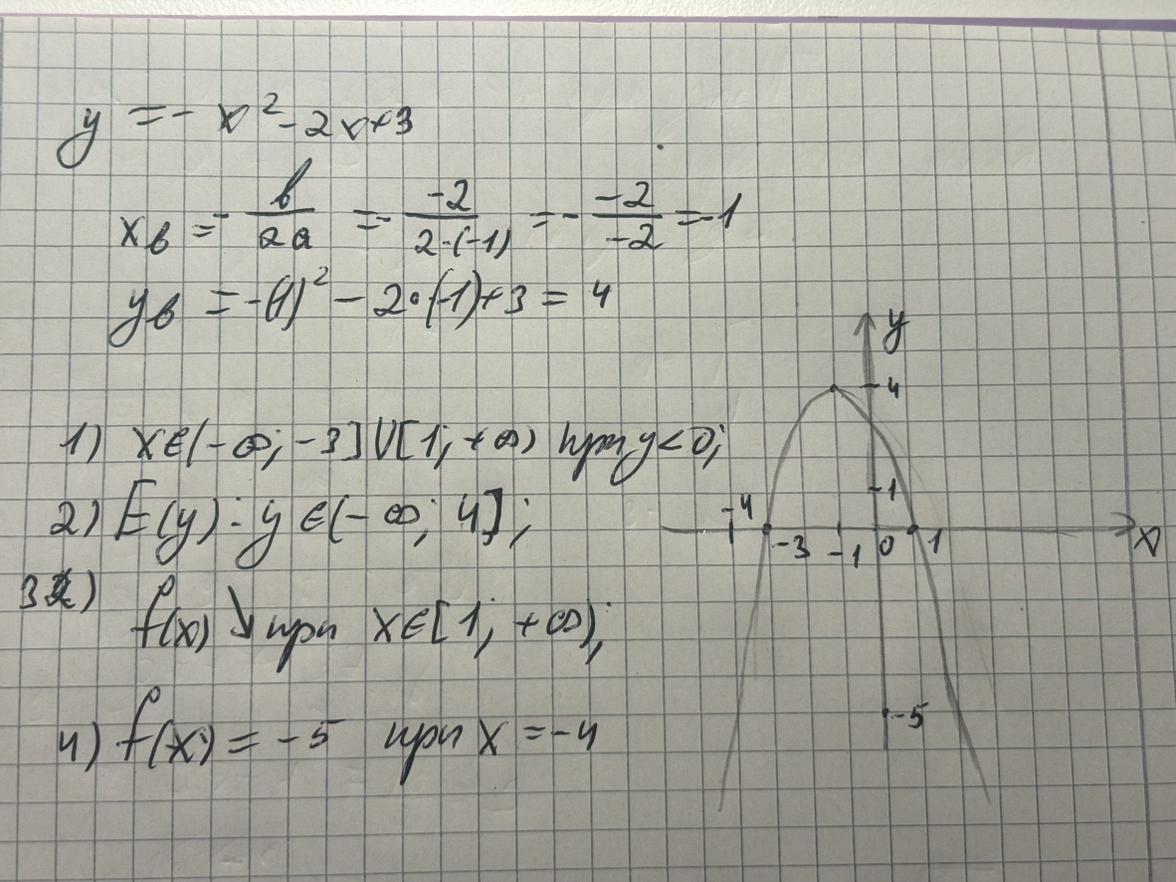 y = - x² - 2x + 3
xв = - в/2a = - -2/2·(-1) = - -2/-2 = -1
yв = -(1)² - 2·(-1) + 3 = 4
1) x∈(-∞; -3]∪[1; +∞) при y<0;
2) E(y): y∈(-∞; 4];
3) f(x)↘ при x∈[1; +∞);
4) f(x) = -5 при x = -4
y
4
1
-4
-3
-1
0
1
x
-5